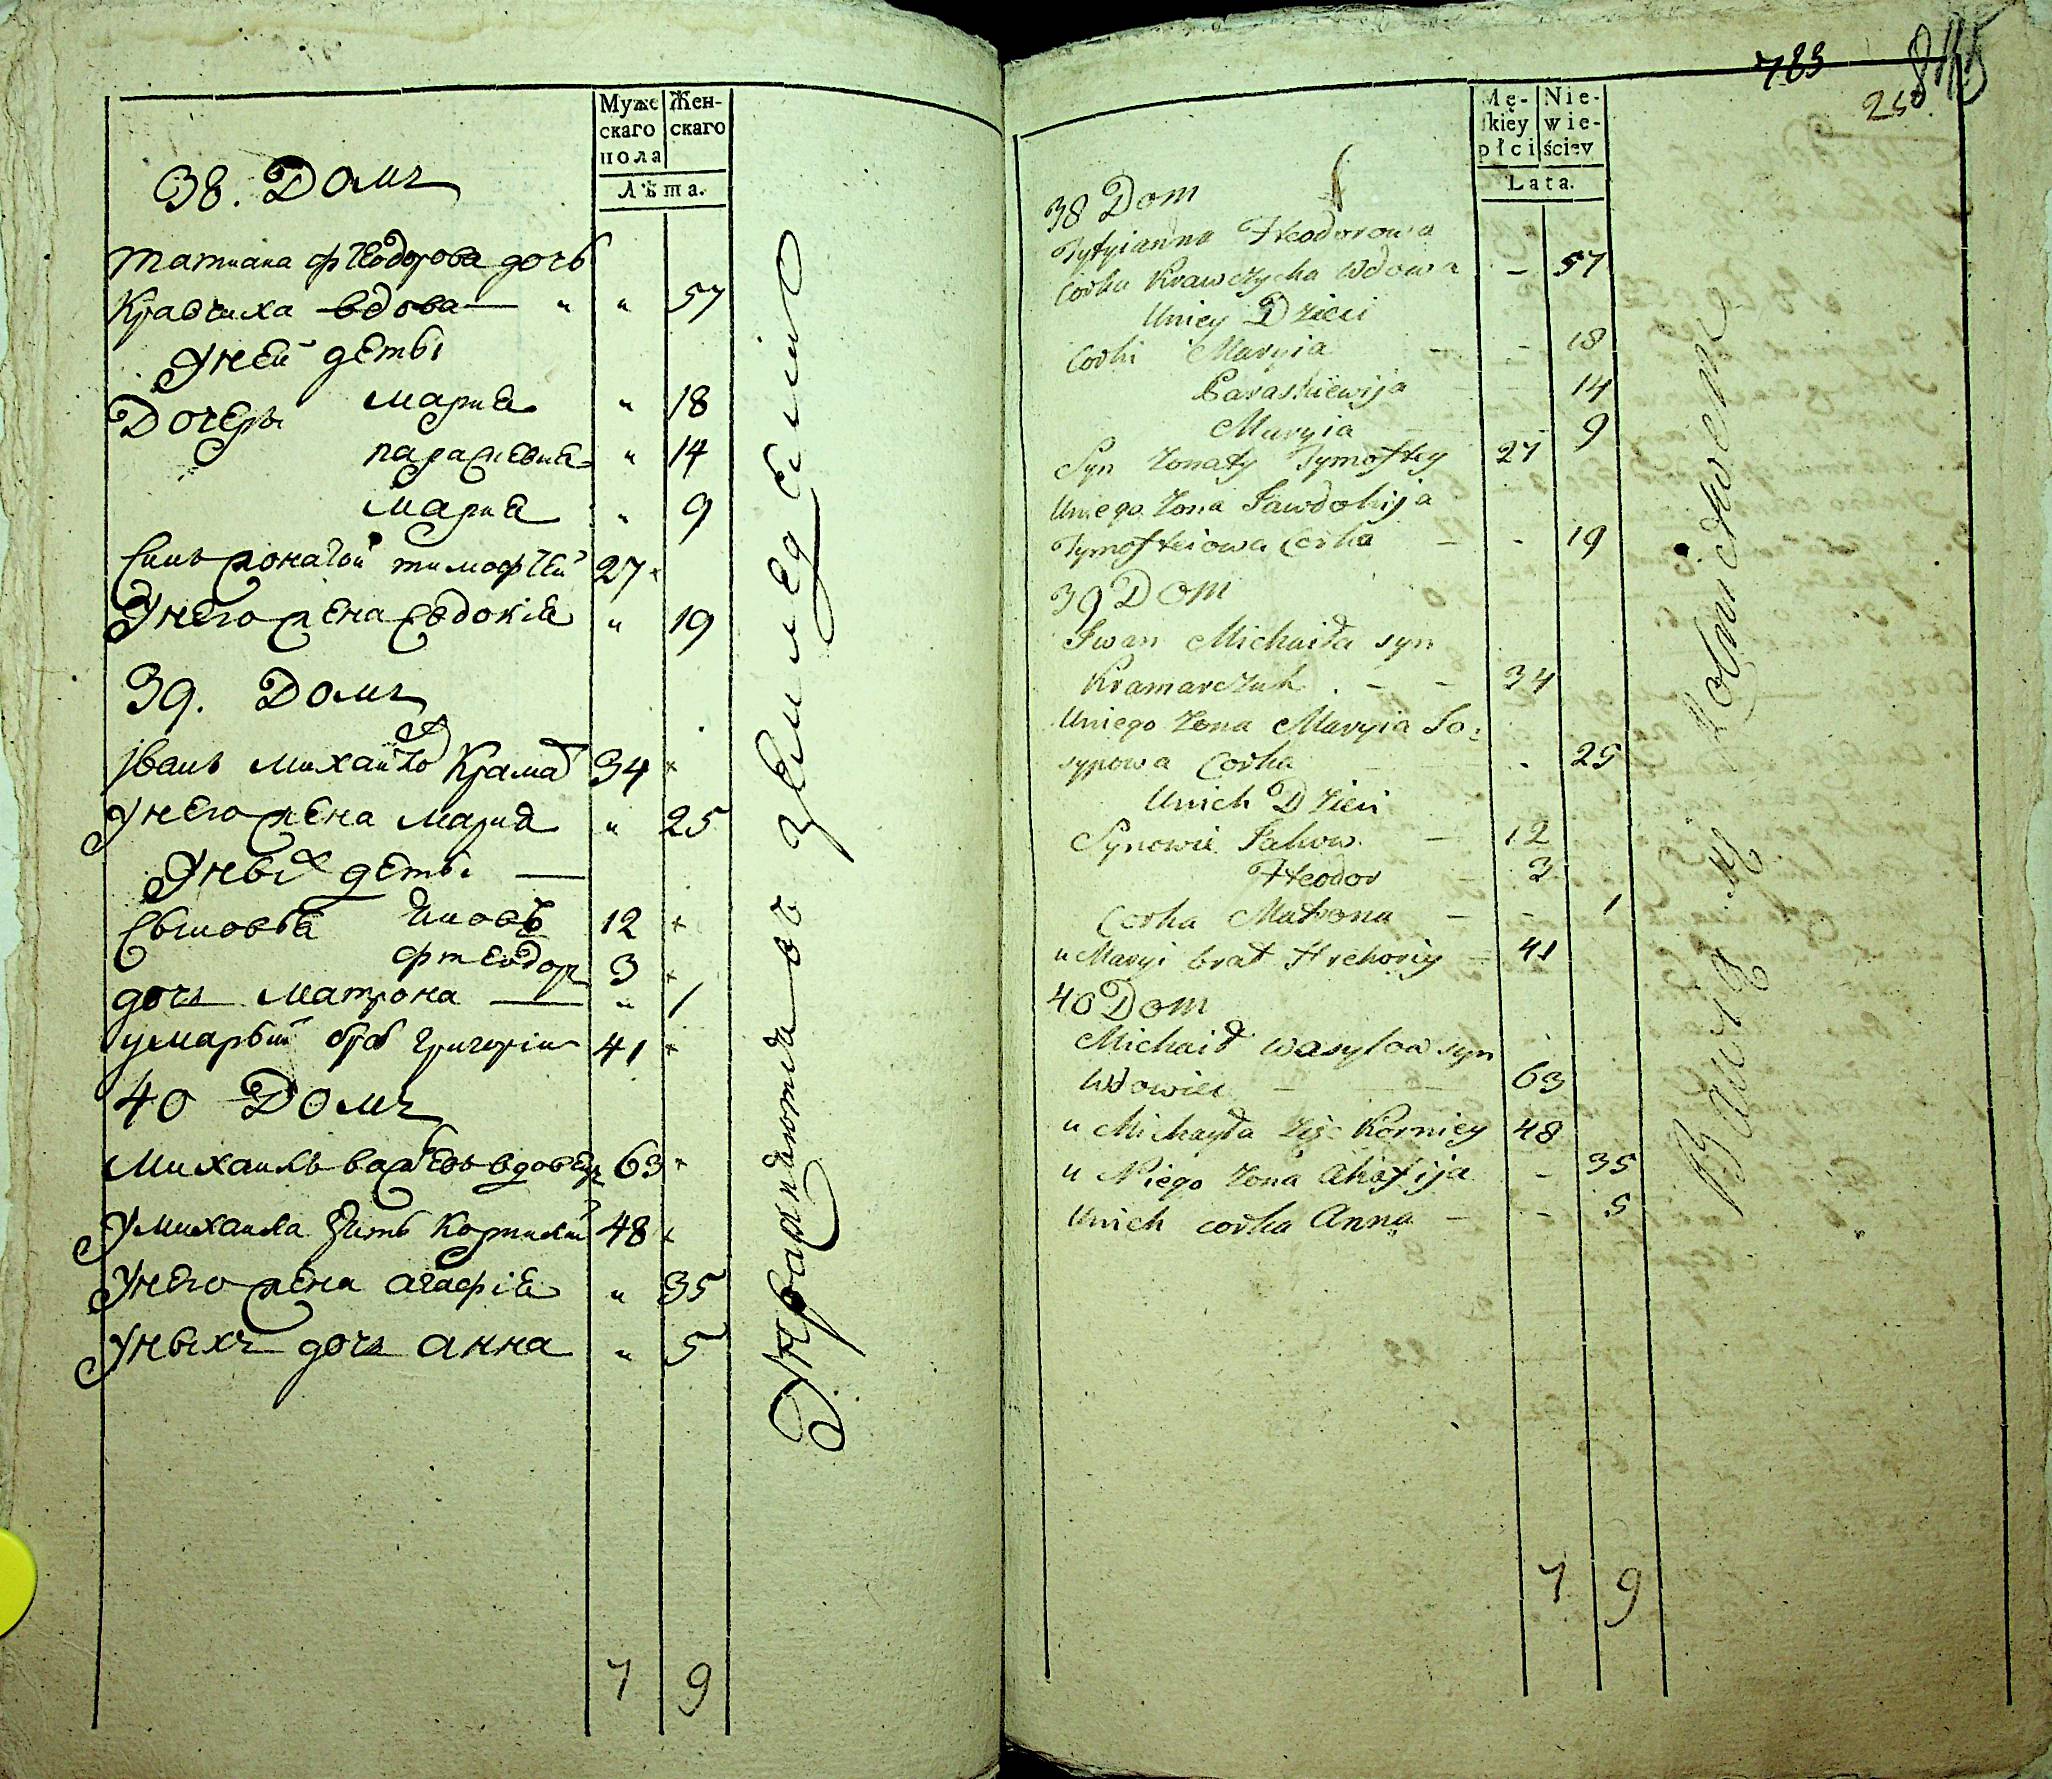 Муже
скаго
пола
Жен-
скаго
Лѣта.
38. Домъ
татиана фтеодорова дочь
Кравчиха вдова — " " 57
Унеи дѣты
Дочеры мариа " 18
параскевиа " 14
мариа " 9
Синъ жонатой тимофтей 27
Унего жена Евдокиа " 19
39. Домъ
Иванъ михайло Крама 34
Унего жена мариа " 25
Уных дѣты —
Сыновьа Яковъ 12
фтеодор 3
дочъ матрона — " 1
умарыи брат григорій 41
40 Домъ
Михаилъ васілевъ вдовецъ 63
Умихаила зять Корнилій 48
Унего жена агафіа " 35
Уныхъ дочъ анна " 5
7 9
783
845
250
Mę-
skiey
płci
Nie-
wie-
ściey
Lata.
38 Dom
Tytyianna Hteodorowa
Corka Krawczycha Wdowa - 57
Uniey Dzieci
Corki Maryia - - 18
Paraskiewija - - 14
Maryia - 9
Syn Zonaty Tymoftey 27
Uniego Zona Jawdokija
Tymofteiowa Corka - - 19
39 Dom
Iwan Michaiła syn
Kramarczuk . - - 34
Uniego Zona Maryia Jo:
sypowa Corka - 25
Unich Dzieci
Synowie Jakow - 12
Hteodor - 3
Corka Matrona - - 1
u Maryi brat Hrehoriy - 41
40 Dom
Michaił Wasylow syn
Wdowiec - 63
u Michayła Zięc Korniey 48
u Niego Zona Ahafija - 35
Unich corka Anna - - 5
Bawią się Rolnictwem
7 9